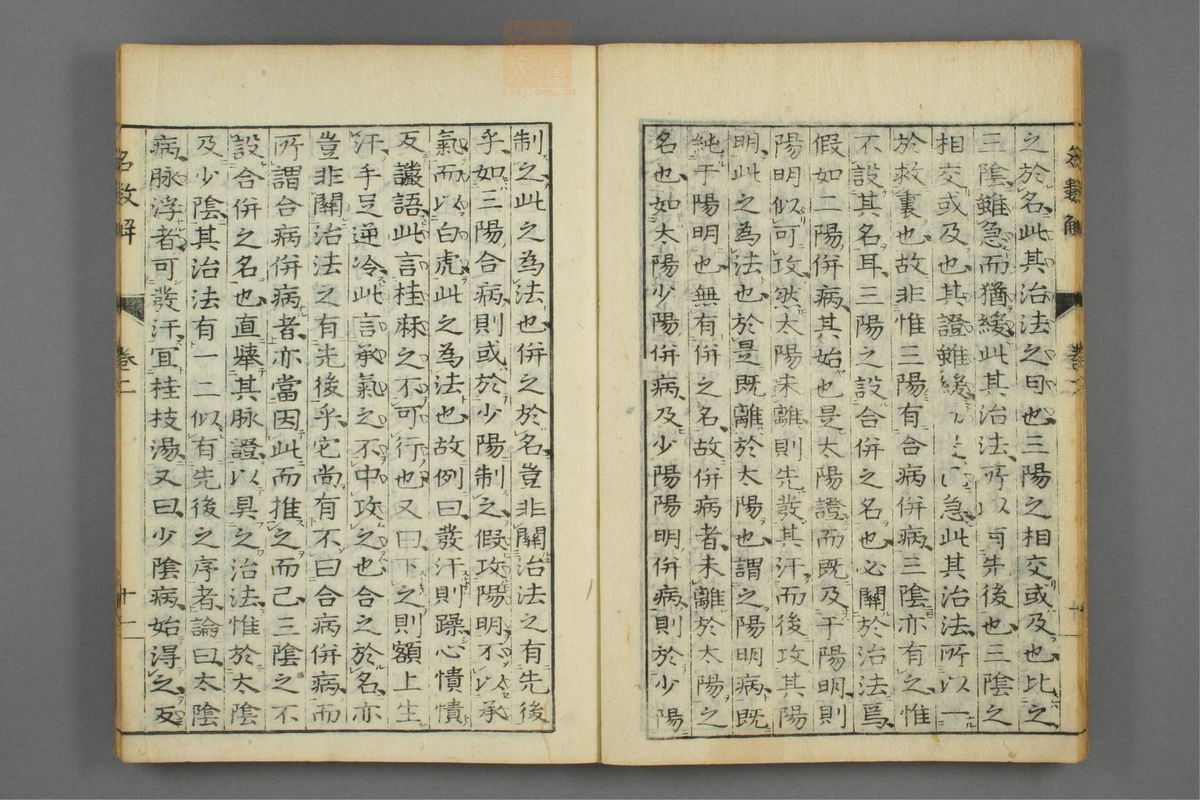 之於名此其治法之曰也三陽之相交或及也比之
三陰雖急而猶緩此其治法所以有先後也三陰之
相交或及也其證雖緩急此其治法所以一
於救裏也故非惟三陽有合病併病三陰亦有之惟
不設其名耳三陽之設合併之名也必關於治法焉
假如二陽併病其始也是太陽證而既及于陽明則
陽明似可攻然太陽未離則先發其汗而後攻其陽
明此之為法也於是既離於太陽也謂之陽明病既
純于陽明也無有併之名故併病者未離於太陽之
名也如太陽少陽併病及少陽陽明併病則於少陽
制之此之為法也併之於名豈非關治法之有先後
乎如三陽合病則或於少陽制之假攻陽明不以承
氣而以白虎此之為法也故例曰發汗則躁心憒憒
反讝語此言桂麻之不可行也又曰下之則額上生
汗手足逆冷此言承氣之不中攻之也合之於名亦
豈非關治法之有先後乎它尚有不曰合病併病而
所謂合病併病者亦當因此而推之而已三陰之不
設合併之名也直舉其脉證以具之治法惟於太陰
及少陰其治法有一二似有先後之序者論曰太陰
病脉浮者可發汗宜桂枝湯又曰少陰病始得之反
名数解
卷二
十一